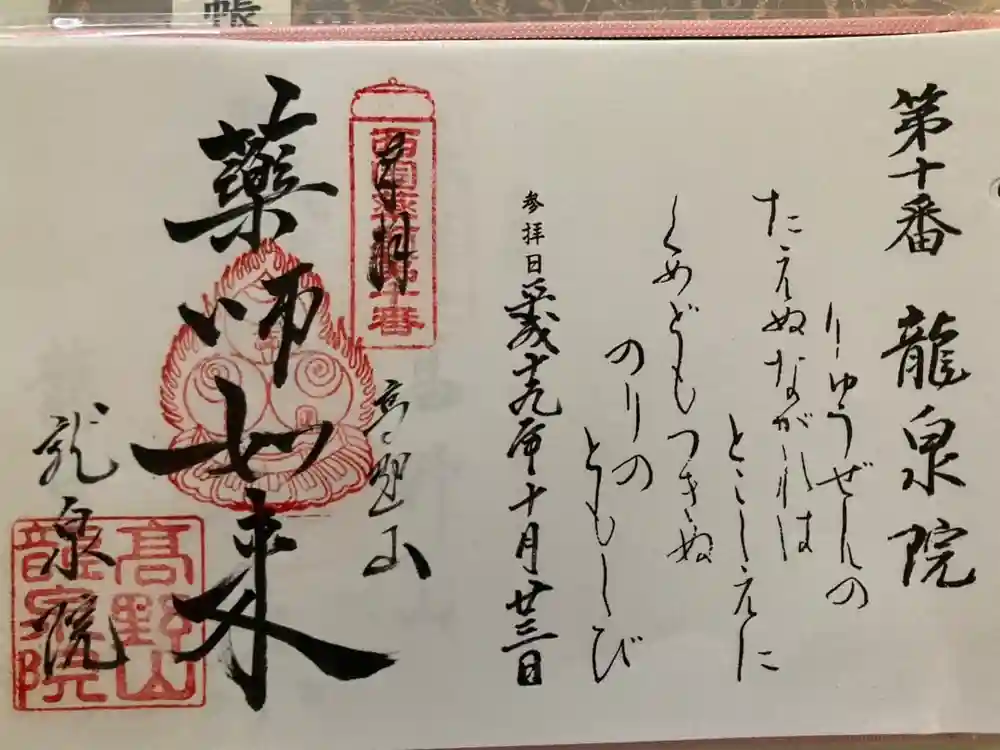 帳
第十番 龍泉院
りゅうぜんの
たえぬながれは
とこしえに
くめどもつきぬ
のりの
ともしび
参拝日 平成十九年十月廿三日
奉拝
西国薬師第十番
高野山
薬師如来
龍泉院
高野山
龍泉院